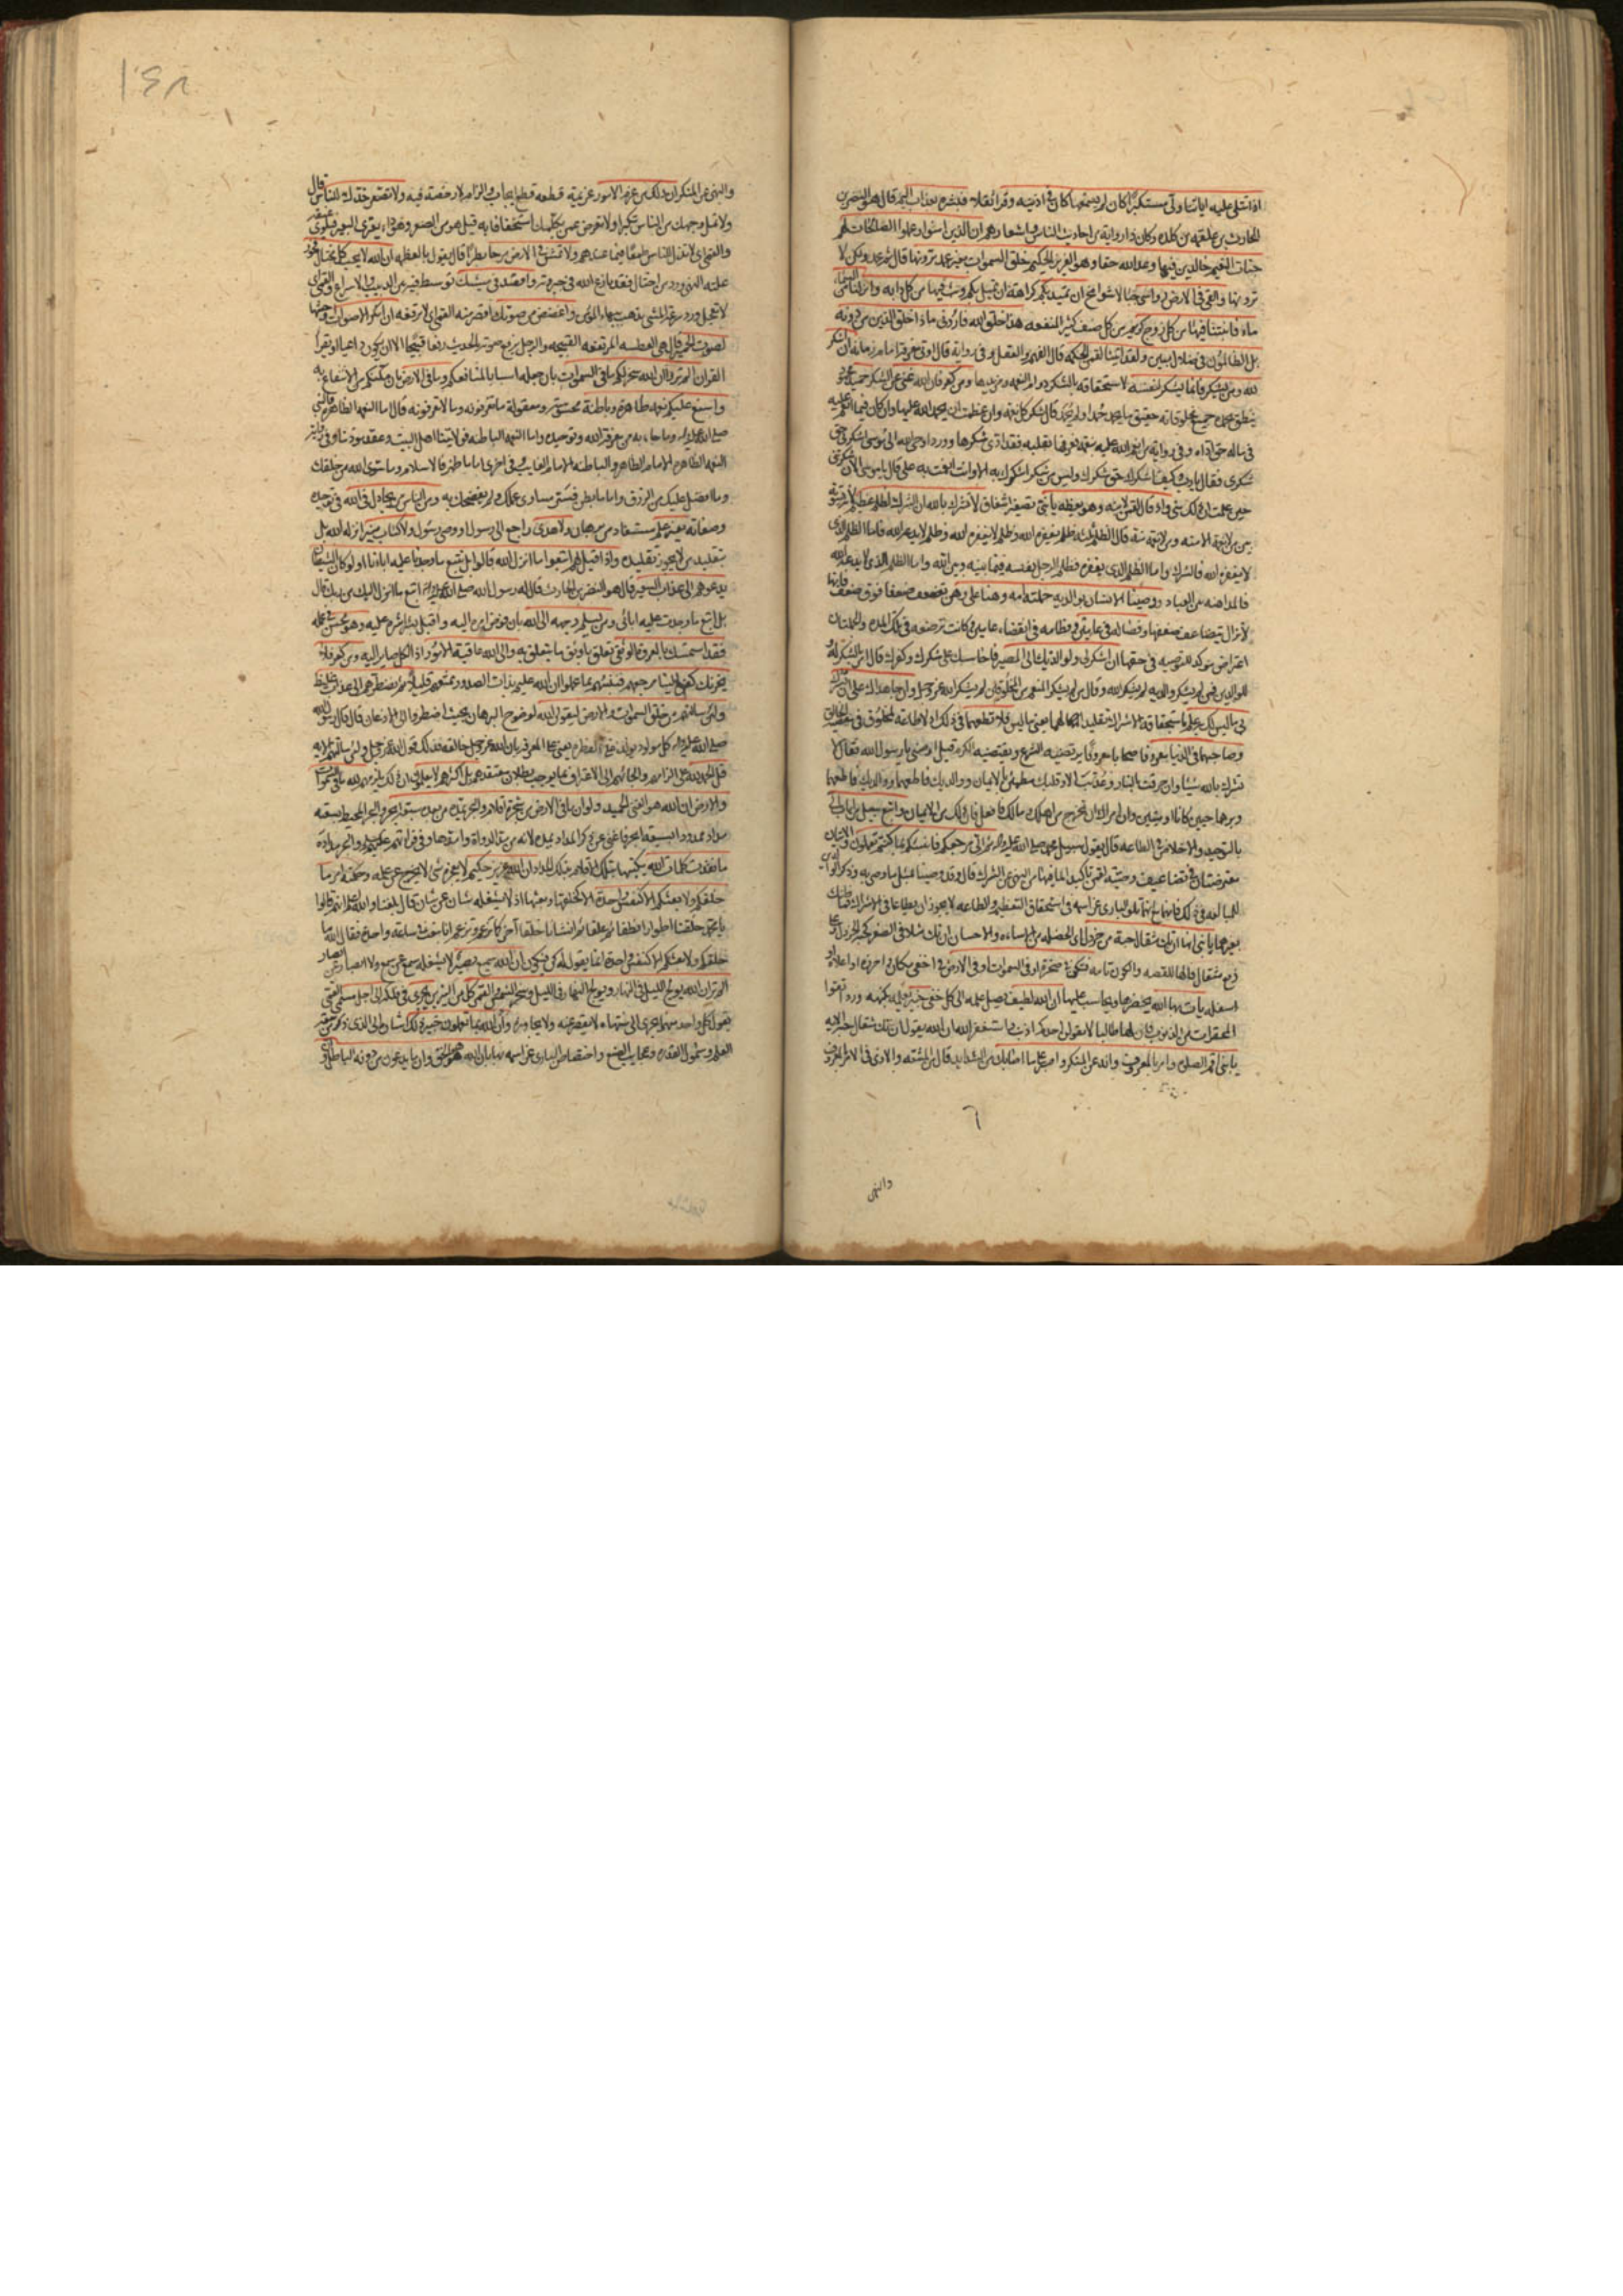 اذا تتلى عليه اياتنا ولى مستكبرا كان لم يسمعها كان في اذنيه وقرا ثقلا فبشره بعذاب اليم قال هو النضر بن
الحارث بن علقمه بن كلده وكان ذا رواية من احاديث الناس واشعارهم ان الذين امنوا وعملوا الصالحات لهم
جنات النعيم خالدين فيها وعد الله حقا وهو العزيز الحكيم خلق السموات بغير عمد ترونها قال ثم عمد ولكن لا
ترونها والقى في الارض رواسي جبالا شوامخ ان تميد بكم كراهة ان تميل بكم وبث فيها من كل دابه وانزلنا من السماء
ماء فانبتنا فيها من كل زوج كريم من كل صنف كثير المنفعه هذا خلق الله فاروني ماذا خلق الذين من دونه
بل الظالمون في ضلال مبين ولقد اتينا لقمن الحكمه قال الفهم والعقل وفي رواية قال اوتي معرفة امام زمانه ان اشكر
لله ومن يشكر فانما يشكر لنفسه لاستحقاقه بالشكر دوام النعمه ومزيدها ومن كفر فان الله غني عن الشكر حميد
ينطق بحمده جميع مخلوقاته حقيق بالحمد حمد او لم يحمد قال شكر كل نعمة وان عظمت ان يحمد الله عليها وان كان فيما انعم عليه
في ماله حق اداه وفي رواية من انعم الله عليه بنعمة فعرفها بقلبه فقد ادى شكرها وورد اوحى الله الى موسى اشكرني حق
شكري فقال يا رب كيف اشكرك حق شكرك وليس من شكر اشكرك به الا وانت انعمت به علي قال يا موسى الان شكرتني
حين علمت ان ذلك مني واذ قال لقمن لابنه وهو يعظه يا بني تصغير اشفاق لا تشرك بالله ان الشرك لظلم عظيم
قال الظلم ثلثه ظلم يغفره الله وظلم لا يغفره الله وظلم لا يدعه الله فاما الظلم الذي
لا يغفره الله فالشرك واما الظلم الذي يغفره فظلم الرجل نفسه فيما بينه وبين الله واما الظلم الذي لا يدعه الله
فالمداينه بين العباد ووصينا الانسان بوالديه حملته امه وهنا على وهن تضعف ضعفا فوق ضعف فانها
لا تزال يتضاعف ضعفها وفصاله في عامين وفطامه في انقضاء عامين وكانت ترضعه في تلك المده والجملتان
اعتراض موكد للتوصيه في حقها ان اشكر لي ولوالديك الي المصير فاحاسبك على شكرك وكفرك قال امر بالشكر له
للوالدين فمن لم يشكر والديه لم يشكر الله وقال من لم يشكر المنعم من المخلوقين لم يشكر الله عز وجل وان جاهداك على ان تشرك
بي ما ليس لك به علم باستحقاقه الاشراك تقليدا لهما يعني ما ليس فلا تطعهما في ذلك اذ لا طاعة لمخلوق في معصية الخالق
وصاحبهما في الدنيا معروفا صحابا معروفا يرتضيه الشرع ويقتضيه الكرم قيل اوصني يا رسول الله فقال لا
تشرك بالله شيئا وان حرقت بالنار وعذبت الا وقلبك مطمئن بالايمان ووالديك فاطعهما
وبرهما حيين كانا او ميتين وان امراك ان تخرج من اهلك ومالك فافعل فان ذلك من الايمان واتبع سبيل من اناب الي
بالتوحيد والاخلاص في الطاعه قال يقول سبيل محمد صلى الله عليه واله ثم الي مرجعكم فانبئكم بما كنتم تعملون والايتان
معترضتان في تضاعيف وصية لقمن تاكيدا لما فيها من النهي عن الشرك قال وقد وصينا بمثل ما وصى به وذكر الوالدين
للمبالغه في ذلك فانهما مع انهما تلو الباري عز اسمه في استحقاق التعظيم والطاعه لا يجوز ان يطاعا في الاشراك فما ظنك
بغيرهما يا بني انها ان تك مثقال حبة من خردل اي الخصله من الاساءه والاحسان ان تك مثلا في الصغر كحبة الخردل
رفع مثقال فالها للقصه والكون تامه فتكن في صخرة او في السموات او في الارض في اخفى مكان واحرزه او اعلاه او
اسفله يات بها الله يحضرها ويحاسب عليها ان الله لطيف يصل علمه الى كل خفي خبير عليم بكنهه ورد اتقوا
المحقرات من الذنوب فان لها طالبا لا يقولن احدكم اذنب واستغفر الله ان الله يقول ان تك مثقال حبة الايه
يا بني اقم الصلوه وامر بالمعروف وانه عن المنكر واصبر على ما اصابك من الشدايد قال من المشقه والاذى في الامر بالمعروف
والنهي
والنهي عن المنكر ان ذلك من عزم الامور عزيمته قطعه قطع ايجاب والزام لا رخصة فيه ولا تصعر خدك للناس قال
ولا تمل وجهك من الناس تكبرا ولا تعرض عمن يكلمك استخفافا به قيل هو من الصعر وهو داء يعتري البعير فيلوي عنقه
والقمي اي لا تذل للناس طمعا فيما عندهم ولا تمش في الارض مرحا بطرا قال يقول بالعظمه ان الله لا يحب كل مختال فخور
علته النهي وورد من اختال فقد نازع الله في جبروته واقصد في مشيك توسط فيه بين الدبيب والاسراع والقمي اي
لا تعجل وورد سرعة المشي يذهب ببهاء المؤمن واغضض من صوتك اقصر منه القمي اي لا ترفعه ان انكر الاصوات اوحشها
لصوت الحمير قال هي العطسه المرتفعه القبيحه والرجل يرفع صوته بالحديث رفعا قبيحا الا ان يكون داعيا او يقرأ
القران الم تروا ان الله سخر لكم ما في السموات بان جعله اسبابا لمنافعكم وما في الارض بان مكنكم من الانتفاع به
واسبغ عليكم نعمه ظاهرة وباطنة محسوسة ومعقولة ما تعرفونه وما لا تعرفونه قال اما النعمه الظاهره فالنبي
صلى الله عليه واله وما جاء به من معرفة الله وتوحيده واما النعمه الباطنه فولايتنا اهل البيت وعقد مودتنا وفي رواية
النعمه الظاهره الامام الظاهر والباطنه الامام الغايب وفي اخرى اما ما ظهر فالاسلام وما سوى الله من خلقك
وما افضل عليك من الرزق واما ما بطن فستر مساوي عملك ولم يفضحك به ومن الناس من يجادل في الله في توحيده
وصفاته بغير علم مستفاد من برهان ولا هدى راجع الى رسول او وصي رسول ولا كتاب منير انزله الله بل
بتقليد من لا يجوز تقليده واذا قيل لهم اتبعوا ما انزل الله قالوا بل نتبع ما وجدنا عليه اباءنا اولو كان الشيطان
يدعوهم الى عذاب السعير قال هو النضر بن الحارث قال له رسول الله صلى الله عليه واله اتبع ما انزل اليك من ربك قال
بل اتبع ما وجدت عليه ابائي ومن يسلم وجهه الى الله بان فوض امره اليه واقبل بشراشره عليه وهو محسن في عمله
فقد استمسك بالعروة الوثقى تعلق باوثق ما يتعلق به والى الله عاقبة الامور اذ الكل صاير اليه ومن كفر فلا
يحزنك كفره الينا مرجعهم فننبئهم بما عملوا ان الله عليم بذات الصدور نمتعهم قليلا ثم نضطرهم الى عذاب غليظ
ولئن سالتهم من خلق السموات والارض ليقولن الله لوضوح البرهان بحيث اضطروا الى الاذعان قال قال رسول الله
صلى الله عليه واله كل مولود يولد على الفطره يعني على المعرفة بان الله عز وجل خالقه فذلك قول الله عز وجل ولئن سالتهم الايه
قل الحمد لله على الزامهم والجائهم الى الاعتراف بما يوجب بطلان معتقدهم بل اكثرهم لا يعلمون ان ذلك يلزمهم لله ما في السموات
والارض ان الله هو الغني الحميد ولو ان ما في الارض من شجرة اقلام والبحر يمده من بعده سبعة ابحر والبحر المحيط بسعته
مداد ممدودا بسبعة ابحر فاغنى عن ذكر المداد يمده لانه من مد الدواة وامدها وفي قرائتهم عليهم السلام والبحر مداده
ما نفدت كلمات الله بكتبها بتلك الاقلام بذلك المداد ان الله عزيز حكيم لا يعجزه شيء لا يخرج عن علمه وحكمته امر ما
خلقكم ولا بعثكم الا كنفس واحدة الا كخلقها وبعثها اذ لا يشغله شان عن شان قال بلغنا والله اعلم انهم قالوا
يا محمد خلقنا اطوارا نطفا ثم علقا ثم انشانا خلقا اخر كما تزعم وتزعم انا نبعث في ساعة واحدة فقال الله ما
خلقكم ولا بعثكم الا كنفس واحدة انما يقول له كن فيكون ان الله سميع بصير لا يشغله سمع عن سمع ولا ابصار عن ابصار
الم تر ان الله يولج الليل في النهار ويولج النهار في الليل وسخر الشمس والقمر كل من النيرين يجري في فلكه الى اجل مسمى القمي
يقول كل واحد منهما يجري الى منتهاه لا يقصر عنه ولا يجاوزه وان الله بما تعملون خبير ذلك اشارة الى الذي ذكر من سعة
العلم وشمول القدره وعجايب الصنع واختصاص الباري عز اسمه بها بان الله هو الحق وان ما يدعون من دونه الباطل